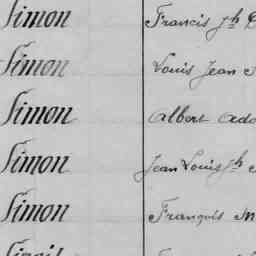 Simon Francis Jh
Simon Louis Jean
Simon Albert Ado
Simon Jean Louis Jh
Simon François M